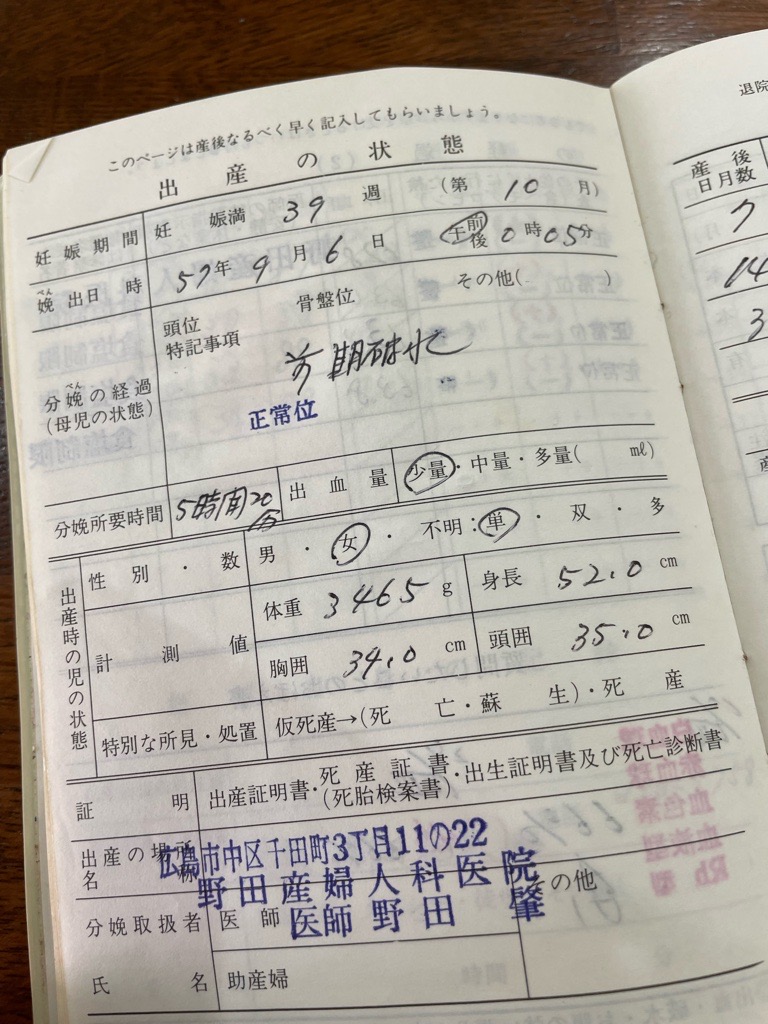 このページは産後なるべく早く記入してもらいましょう。
出産の状態
妊娠期間 妊娠満 39 週 (第 10 月)
娩出日時 57年 9月 6日 午前後 0時05分
べん
頭位 骨盤位 その他( )
特記事項
前期破水
正常位
分娩の経過
べん
(母児の状態)
分娩所要時間 5時間20分 出血量 少量・中量・多量( ml)
出産時の児の状態
性別・数 男・女・不明:単・双・多
計測値 体重 3465 g 身長 52.0 cm
胸囲 34.0 cm 頭囲 35.0 cm
特別な所見・処置 仮死産→(死亡・蘇生)・死産
証明 出産証明書・死産証書(死胎検案書)・出生証明書及び死亡診断書
出産の場所
名称
広島市中区千田町3丁目11の22
野田産婦人科医院
分娩取扱者 医師 医師 野田 肇 その他
氏名 助産婦
退院
産後
日月数
7
14
3